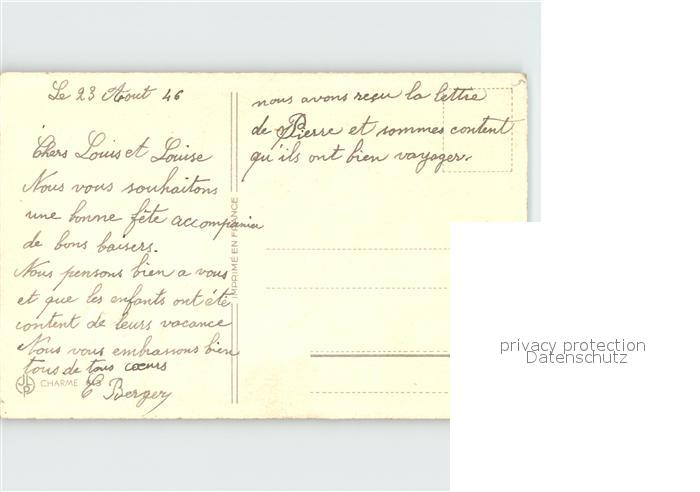 Le 23 Aout 46
Chers Louis et Louise
Nous vous souhaitons
une bonne fête accompanier
de bons baisers.
Nous pensons bien a vous
et que les enfants ont été
content de leurs vacance
Nous vous embrassons bien
tous de tous cœurs
C Berger
CHARME
IMPRIMÉ EN FRANCE
nous avons reçu la lettre
de Pierre et sommes content
qu'ils ont bien voyager.
privacy protection
Datenschutz